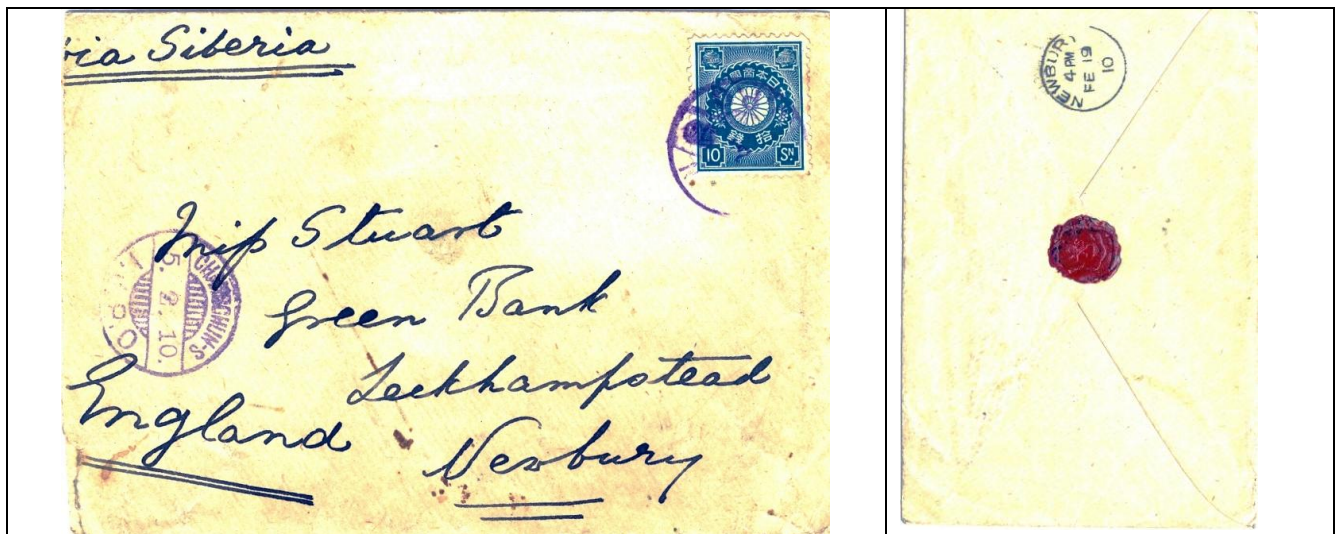 via Siberia
大日本帝國
拾錢
10 SN.
Miss Stuart
Green Bank
Leckhampstead
Newbury
England
CHANGCHUN-S
5. 2. 10.
I.J.P.O.
NEWBURY
4 PM
FE 19
10